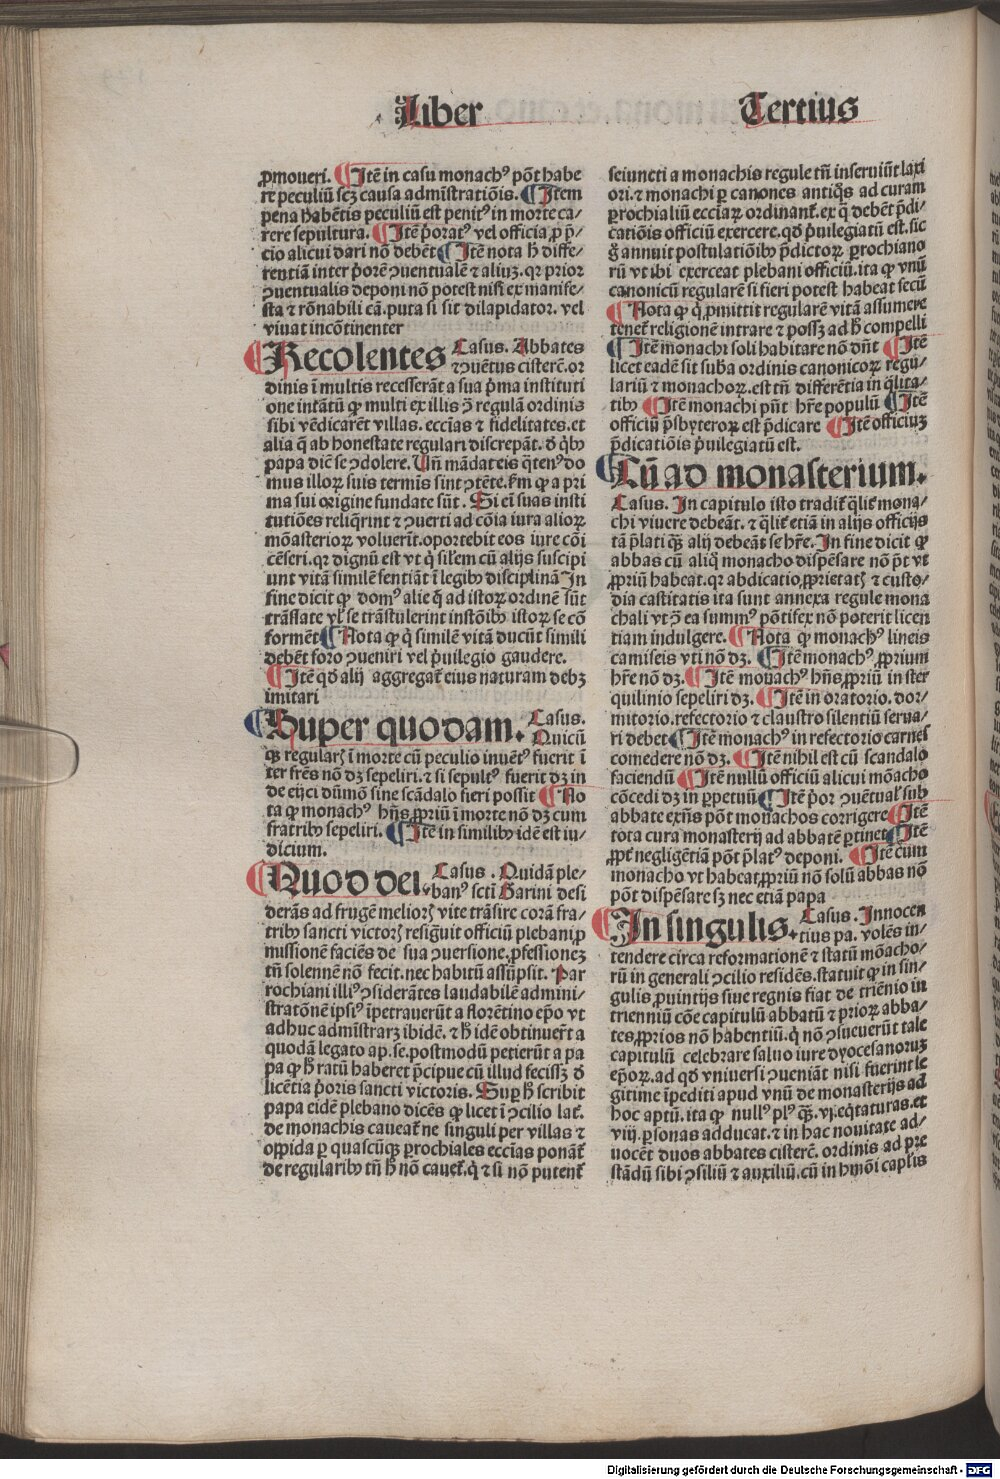 Liber
Tertius
ꝓmoueri. ¶Itē in casu monachꝰ põt habe
re peculiū scꝫ causa admĩstratiõis. ¶Item
pena habẽtis peculiū est penitꝰ in morte ca-
rere sepultura. ¶Itē p̃oratꝰ vel officia ꝓ p̃-
cio alicui dari nõ debēt ¶Itē nota h̃ diffe-
rentiā inter p̃orē ꝯuentualē ⁊ aliuꝫ. qꝛ prior
ꝯuentualis deponi nõ potest nisi ex manife-
sta ⁊ rõnabili cā. puta si sit dilapidator. vel
viuat incõtinenter
¶Recolentes Casus. Abbates
⁊ ꝯuētus cisterč. or
dinis ī multis recesserāt a sua p̃ma instituti
one intātū ꝙ multi ex illis ꝯ̄ regulā ordinis
sibi vēdicarēt villas. ecc̄ias ⁊ fidelitates. ⁊
alia q̄ ab honestate regulari discrepāt. d̓ q̇bꝰ
papa dič se ꝯdolere. Vñ mādat eis q̄tenꝰ do
mus illoꝝ suis termis sint ꝯtēte. k̓m ꝙ a pri
ma sui origine fundate sūt. Si eī suas insti
tutiões reliq̄rint ⁊ ꝯuerti ad cõia iura alioꝝ
mõasterioꝝ voluerīt. oportebit eos iure cõi
cēseri. qꝛ dignū est vt q̇ sil̓em cū alijs suscipi
unt vitā similē sentiāt ī legibꝰ disciplinā In
fine dicit ꝙ domꝰ alie q̄ ad istoꝝ ordinē sūt
trāslate vl̓ se trāstulerint instõibꝰ istoꝝ se cõ
formēt ¶Nota ꝙ q̇ similē vitā ducūt simili
debēt foro ꝯueniri vel p̓uilegio gaudere.
¶Itē qd̓ alij aggregat̃ eius naturam debꝫ
imitari
¶Super quodam. Casus.
Quicū
qꝫ regularꝭ ī morte cū peculio inuētꝰ fuerit ī
ter fr̄es nõ dꝫ sepeliri. ⁊ si sepultꝰ fuerit dꝫ in
de eijci dūmõ sine scādalo fieri possit ¶No
ta ꝙ monachꝰ hñs ꝓpriū ī morte nõ dꝫ cum
fratribꝰ sepeliri. ¶Itē in similibꝰ idē est iu-
dicium.
¶Quod dei. Casus. Quidā ple-
banꝰ sctī Garini desi
derās ad frugē meliorꝭ vite trāsire corā fra-
tribꝰ sancti victorꝭ resig̃uit officiū plebani ꝓ
missionē faciēs de sua ꝯuersione. ꝓfessioneꝫ
tñ solennē nõ fecit. nec habitū assūpsit. Par
rochiani illiꝰ ꝯsiderātes laudabilē admini-
stratõnē ipsiꝰ īpetrauerūt a florētino ep̄o vt
adhuc admīstrarꝫ ibidē. ⁊ h̃ idē obtinuer̃t a
quodā legato ap. se. postmodū petierūt a pa
pa ꝙ h̃ ratū haberet p̃cipue cū illud fecisꝫ d̓
licētia p̓oris sancti victoris. Suꝑ h̃ scribit
papa eidē plebano dicēs ꝙ licet ī ꝯcilio lat̓.
de monachis caueat̃ ne singuli per villas ⁊
oppida ꝑ quascūqꝫ ꝑrochiales ecc̄ias ponāt̃
de regularibꝰ tñ h̃ nõ cauet̃. q̇ ⁊ si nõ putent̃
seiuncti a monachis regule tñ inseruiūt laxi
ori. ⁊ monachi ꝑ canones antiq̄s ad curam
ꝑrochialiū ecc̄iaꝝ ordinant̃. ex q̄ debēt p̄di-
catiõis officiū exercere. qd̓ p̓uilegiatū est. sic
g̊ annuit postulatiõibꝰ p̄dictoꝝ ꝑrochiano
rū vt ibi exerceat plebani officiū. ita ꝙ vnū
canonicū regularē si fieri potest habeat secū
¶Nota ꝙ q̇ ꝓmittit regularē vitā assumere
tenet̃ religionē intrare ⁊ possꝫ ad h̃ compelli
¶Itē monachi soli habitare nõ dn̄t ¶Itē
licet eadē sit sub̃a ordinis canonicoꝝ regu-
lariū ⁊ monachoꝝ. est tñ differētia in q̄lita-
tibꝰ ¶Itē monachi pn̄t hr̄e populū ¶Itē
officiū p̄sbyteroꝝ est p̄dicare ¶Itē officiuꝫ
p̄dicatiõis p̓uilegiatū est.
¶Cū ad monasterium.
Casus. In capitulo isto tradit̃ q̄lit̓ mona-
chi viuere debeāt. ⁊ q̄lit̓ etiā in alijs officijs
tā p̄lati qꝫ alij debeāt se hr̄e. In fine dicit ꝙ
abbas cū aliq̊ monacho dispēsare nõ p̃t vt
ꝓpriū habeat. qꝛ abdicatio ꝓprietatꝭ ⁊ custo-
dia castitatis ita sunt annexa regule mona
chali vt ꝯ̄ ea summꝰ põtifex nõ poterit licen
tiam indulgere. ¶Nota ꝙ monachꝰ lineis
camiseis vti nõ dꝫ. ¶Itē monachꝰ ꝓprium
hr̄e nõ dꝫ. ¶Itē monachꝰ hñs ꝓpriū in ster
quilinio sepeliri dꝫ. ¶Itē in oratorio. dor-
mitorio. refectorio ⁊ claustro silentiū serua-
ri debet ¶Itē monachꝰ in refectorio carnes
comedere nõ dꝫ. ¶Itē nihil est cū scandalo
faciendū ¶Itē nullū officiū alicui mõacho
cõcedi dꝫ in ꝑpetuū ¶Itē p̓or ꝯuētual̓ sub
abbate exñs põt monachos corrigere ¶Itē
tota cura monasterij ad abbatē ꝑtinet ¶Itē
ꝓpt̓ negligētiā põt p̄latꝰ deponi. ¶Itē cum
monacho vt habeat ꝓpriū nõ solū abbas nõ
põt dispēsare sꝫ nec etiā papa
¶In singulis. Casus. Innocen
tius pa. volēs in-
tendere circa reformationē ⁊ statū mõacho-
rū in generali ꝯcilio residēs. statuit ꝙ in sin-
gulis ꝓuintijs siue regnis fiat de triēnio in
trienniū cõe capitulū abbatū ⁊ prioꝝ abba-
tes ꝓprios nõ habentiū. q̇ nõ ꝯsueuerūt tale
capitulū celebrare saluo iure dyocesanoruꝫ
ep̄oꝝ. ad qd̓ vniuersi ꝯueniāt nisi fuerint le
gitime īpediti apud vnū de monasterijs ad
hoc aptū. ita ꝙ nullꝰ plꝰ qꝫ. vj. eq̄taturas. et
viij. ꝑsonas adducat. ⁊ in hac nouitate ad-
uocēt duos abbates cisterč. ordinis ad pre
stādū sibi ꝯsiliū ⁊ auxiliū. cū in hmõi cap̃lis
Digitalisierung gefördert durch die Deutsche Forschungsgemeinschaft - DFG